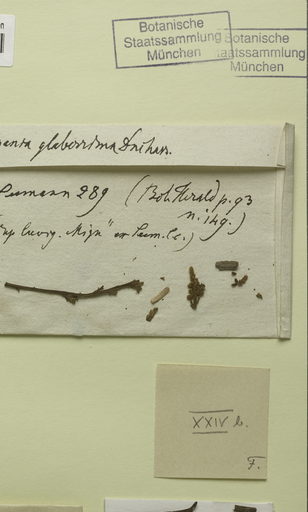 Botanische
Staatssammlung
München
Botanische
Staatssammlung
München
glaberrima Duchass.
Seemann 289 (Bot. Herald p. 93
n. 149.)
ex Seem. l.c.)
XXIV b.
F.